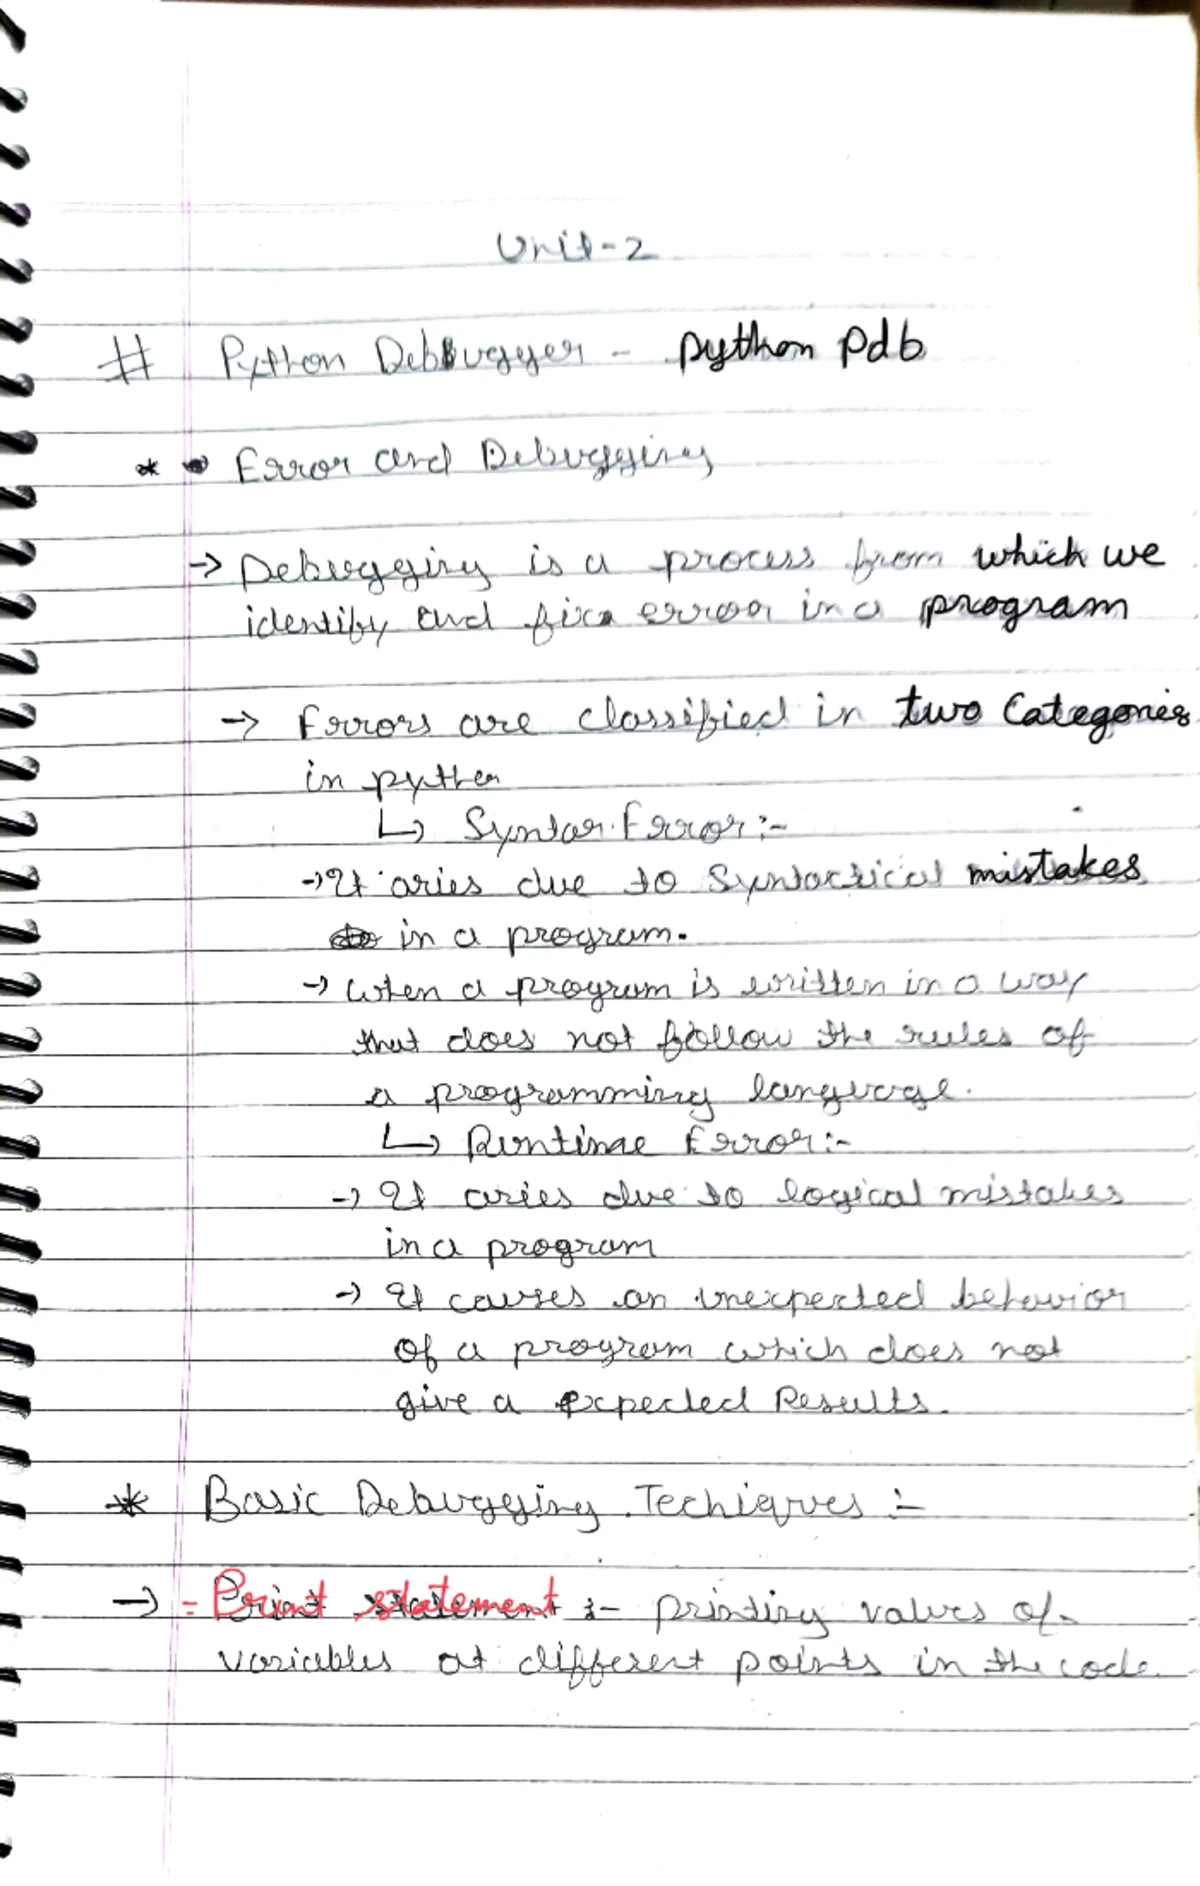 Unit-2
# Python Debbugger - python pdb
* Error and Debugging
→ Debugging is a process from which we
identify and fix error in a program
→ Errors are classified in two Categories
in python
↳ Syntax Error:-
→ It aries due to Syntactical mistakes
in a program.
→ when a program is written in a way
that does not follow the rules of
a programming language.
↳ Runtime Error:-
→ It aries due to logical mistakes
in a program
→ It causes an unexpected behavior
of a program which does not
give a expected Results.
* Basic Debugging Techiques :-
→ = Print statement :- printing values of
variables at different points in the code.